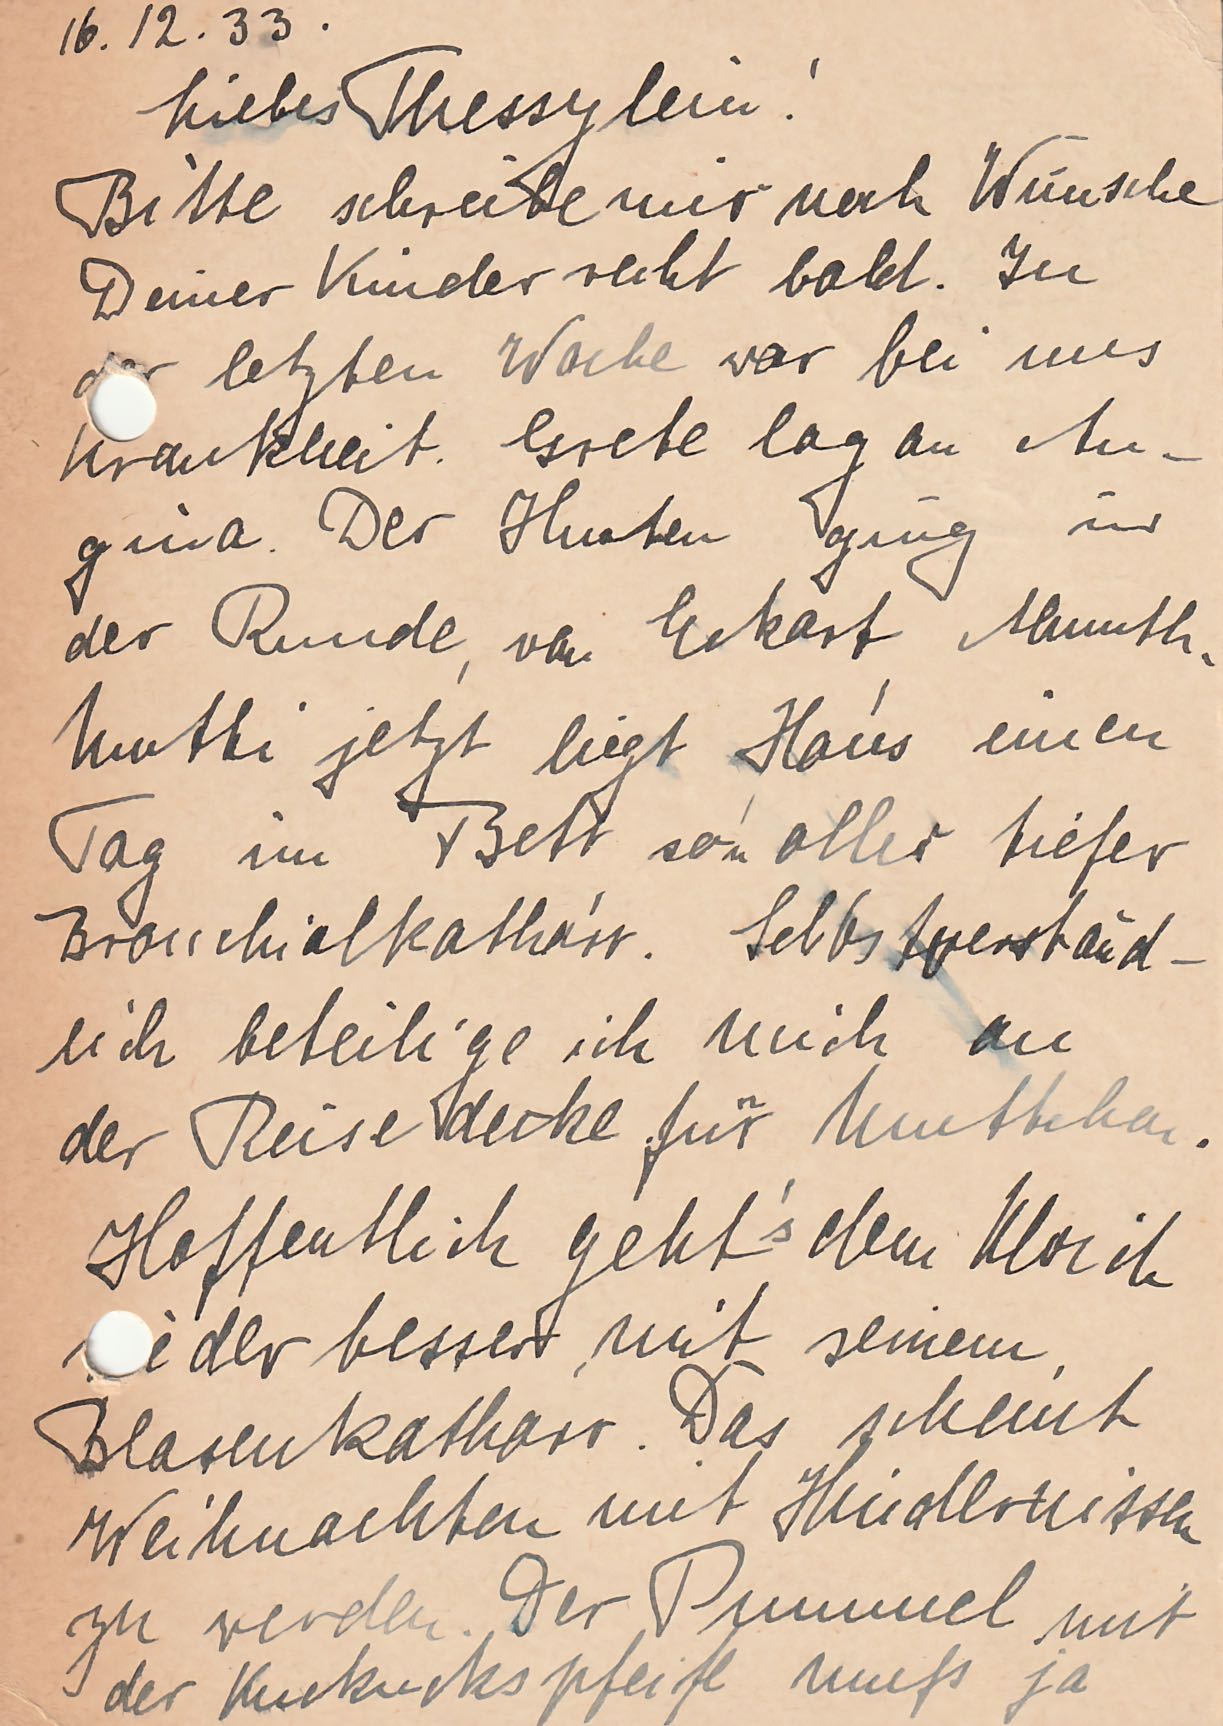 16.12.33.
Liebes Thessylein!
Bitte schreibe mir noch Wünsche
Deiner Kinder recht bald. In
der letzten Woche war bei uns
Krankheit. Grete lag an An-
gina. Der Husten ging in
der Runde, von Eckart
Mutti jetzt liegt Hans einen
Tag im Bett tiefer
Bronchialkatharr. Selbstverständ-
lich beteilige ich mich an
der Reisedecke für Muttchen.
Hoffentlich geht's dem Ulrich
wieder besser mit seinem
Blasenkatharr. Das scheint
Weihnachten mit Hindernissen
zu werden. Der Pummel mit
der Kuckuckspfeife muß ja